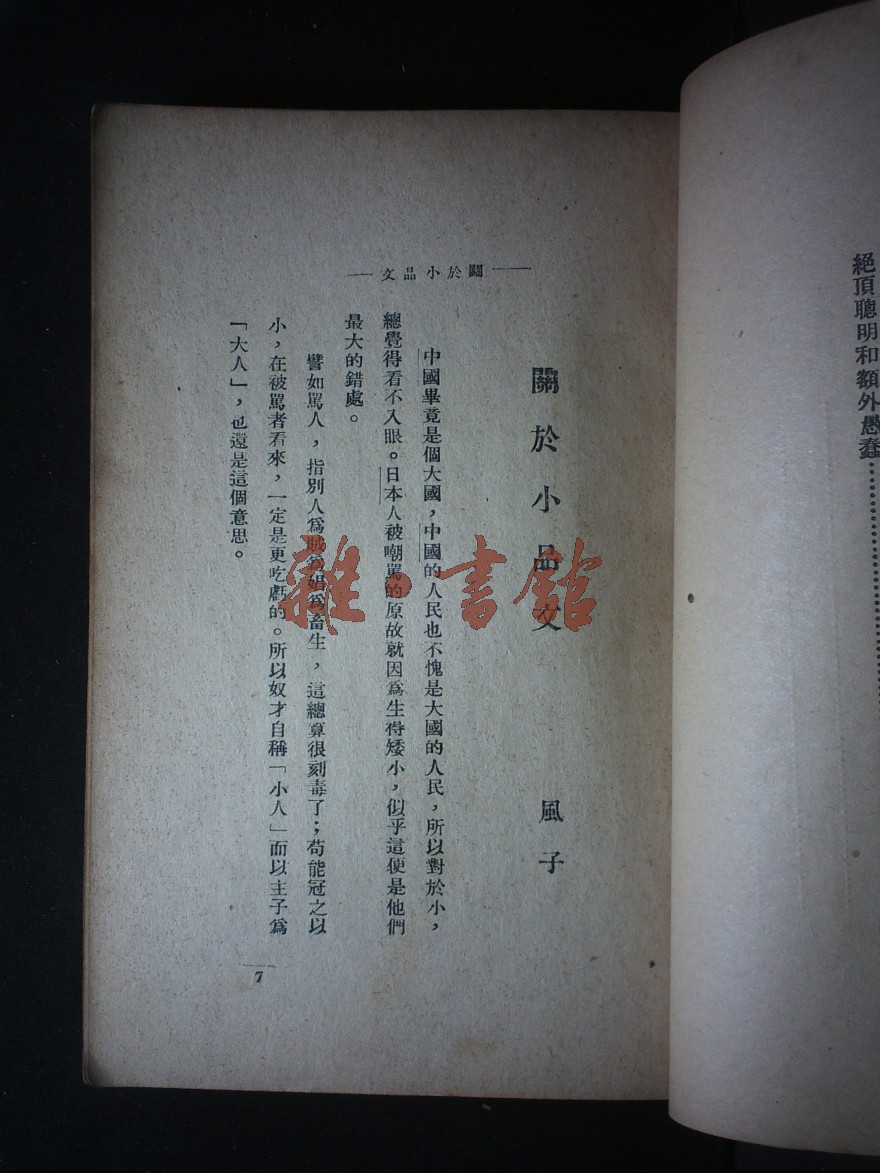 絕頂聰明和額外愚蠢…………
關於小品文
關於小品文　風子
中國畢竟是個大國，中國的人民也不愧是大國的人民，所以對於小，
總覺得看不入眼。日本人被嘲罵的原故就因爲生得矮小，似乎這便是他們
最大的錯處。
譬如罵人，指別人爲賊爲娼爲畜生，這總算很刻毒了；苟能冠之以
小，在被罵者看來，一定是更吃虧的。所以奴才自稱「小人」而以主子爲
「大人」，也還是這個意思。
7
雜·書館